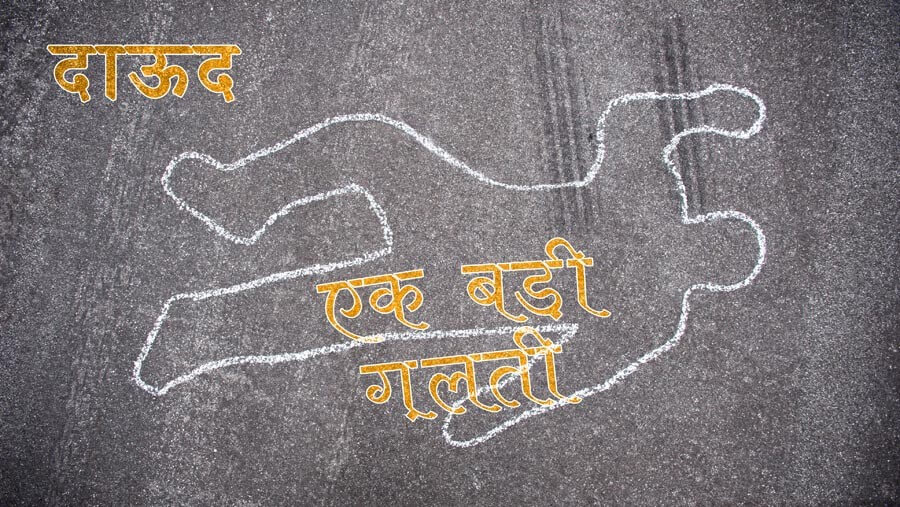 दाऊद
एक बड़ी
ग़लती